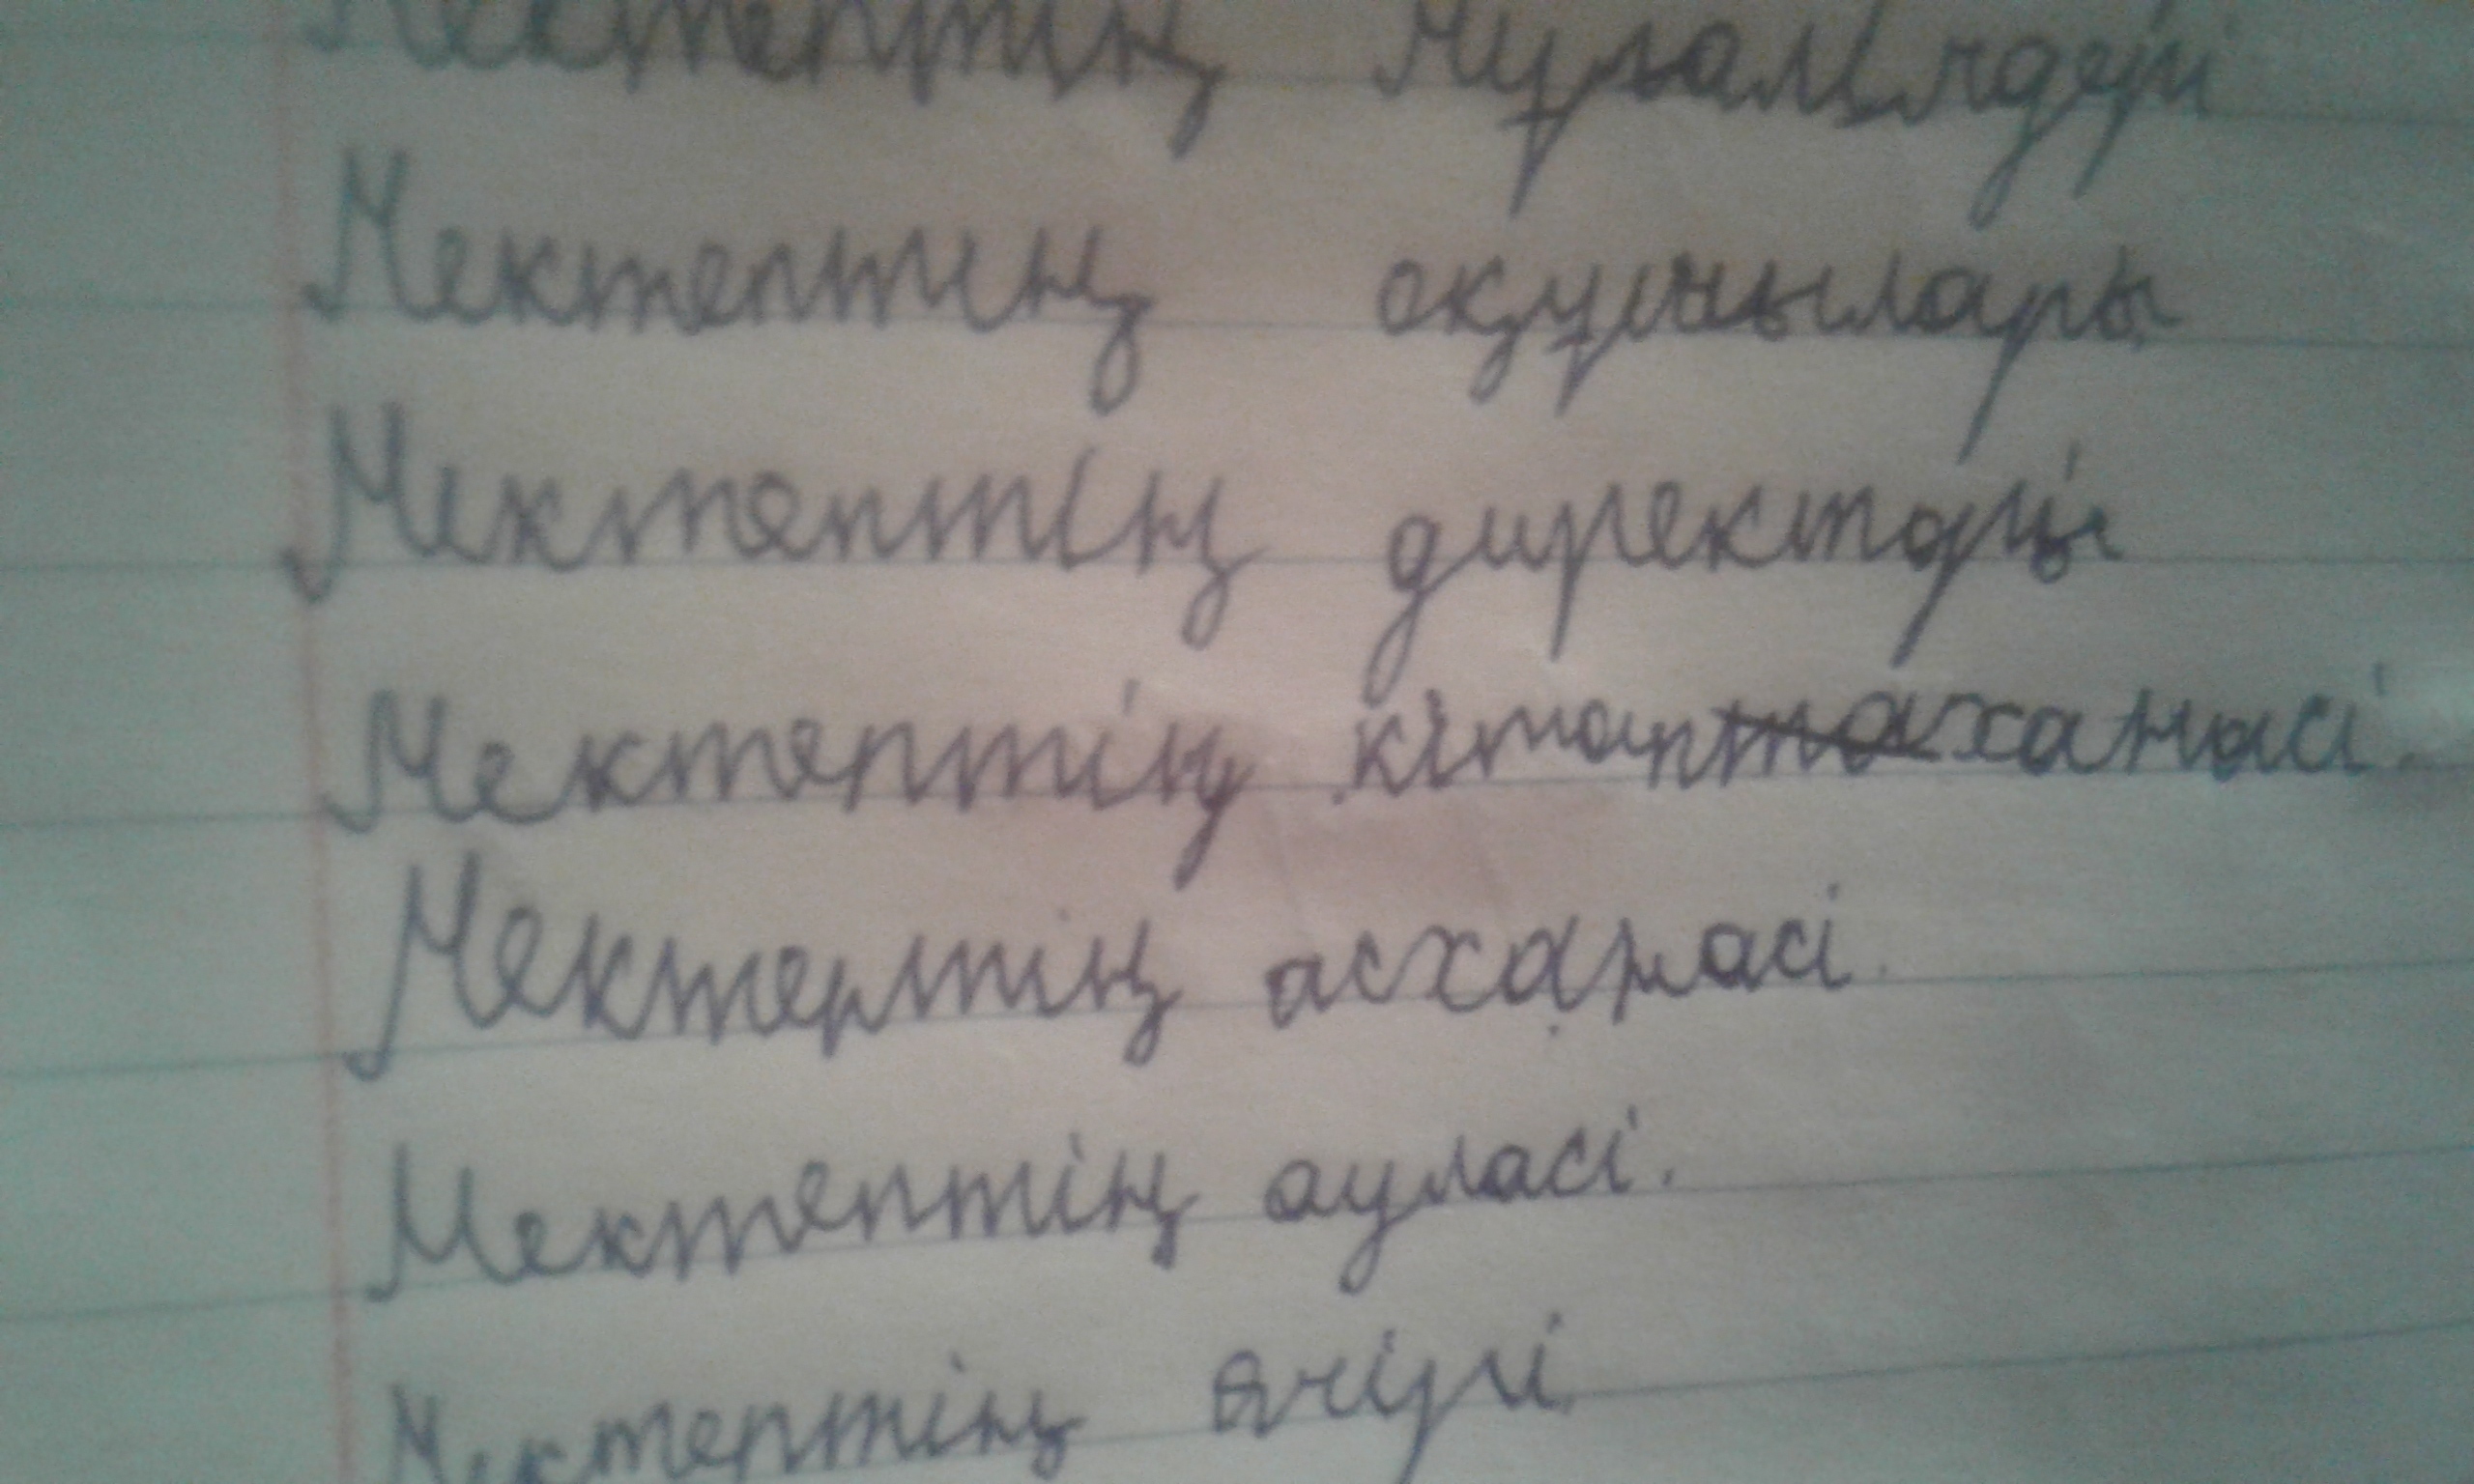 Мектептің мұғалімдері
Мектептің оқұшылары
Мектептің директоры
Мектептің кітапханасі.
Мектептің асханасі.
Мектептің ауласі.
Мектептің